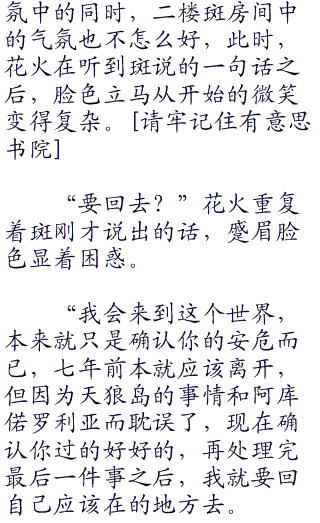 氛中的同时，二楼斑房间中
的气氛也不怎么好，此时，
花火在听到斑说的一句话之
后，脸色立马从开始的微笑
变得复杂。[请牢记住有意思
书院]
“要回去？”花火重复
着斑刚才说出的话，蹙眉脸
色显着困惑。
“我会来到这个世界，
本来就只是确认你的安危而
已，七年前本就应该离开，
但因为天狼岛的事情和阿库
偌罗利亚而耽误了，现在确
认你过的好好的，再处理完
最后一件事之后，我就要回
自己应该在的地方去。